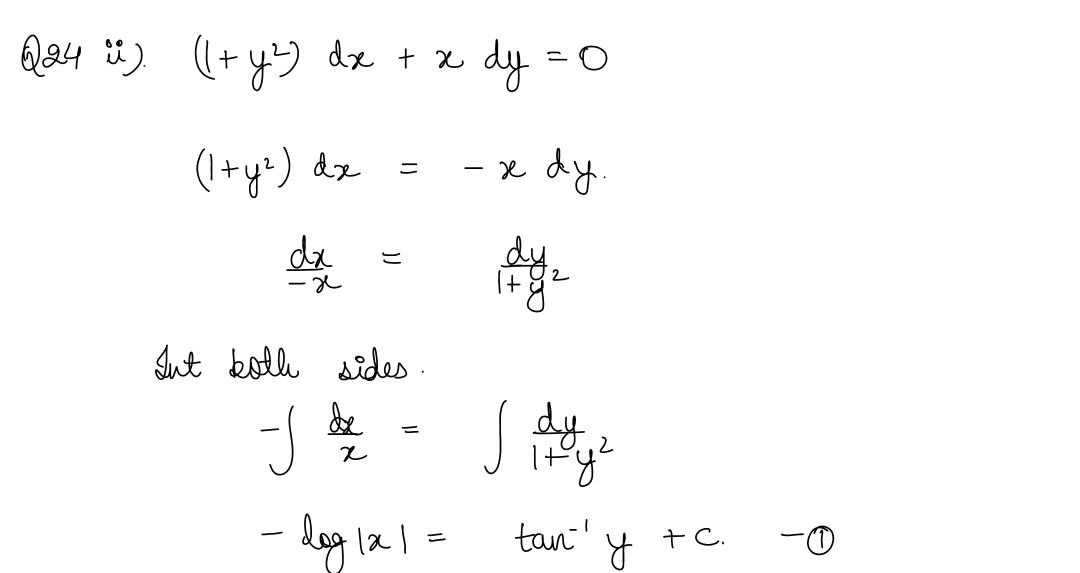 Q24 ii). (1+y²) dx + x dy = 0
(1+y²) dx = - x dy.
dx/-x = dy/1+y²
Int both sides.
-∫ dx/x = ∫ dy/1+y²
- log |x| = tan⁻¹ y + c. -①